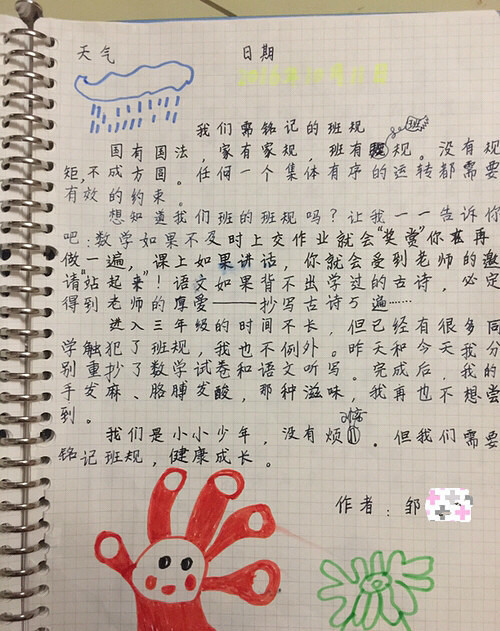 天气 日期
我们需铭记的班规
国有国法，家有家规，班有班规。没有规
矩，不成方圆。任何一个集体有序的运转都需要
有效的约束。
想知道我们班的班规吗？让我一一告诉你
吧：数学如果不及时上交作业就会“奖赏”你在再
做一遍，课上如果讲话，你就会受到老师的邀
请“站起来”！语文如果背不出学过的古诗，必定
得到老师的厚爱——抄写古诗5遍……
进入三年级的时间不长，但已经有很多同
学触犯了班规，我也不例外。昨天和今天我分
别重抄了数学试卷和语文听写。完成后，我的
手发麻、胳膊发酸，那种滋味，我再也不想尝
到。
我们是小小少年，没有烦恼。但我们需要
铭记班规，健康成长。
作者：邹